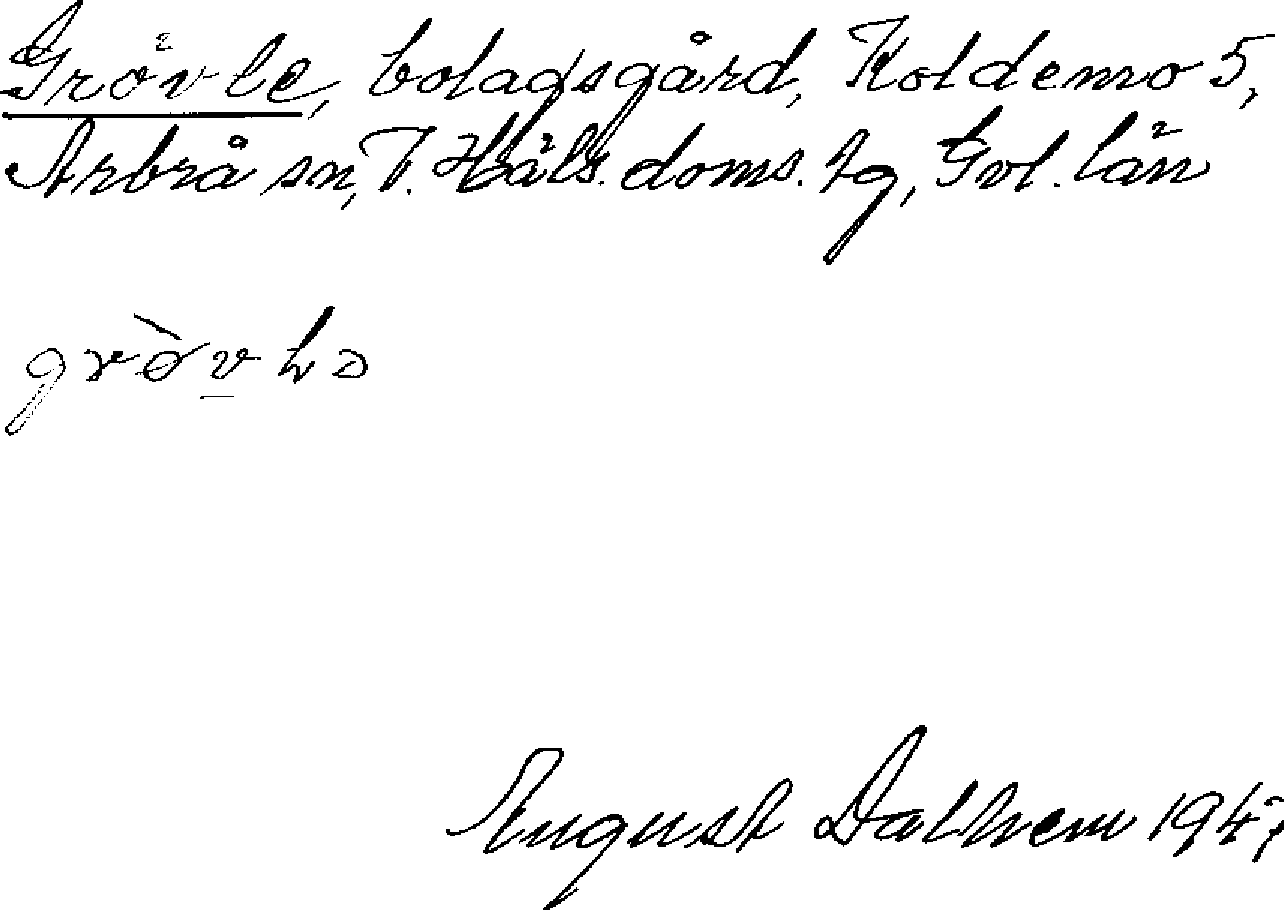 Grövle, bolagsgård, Koldemo 5,
Arbrå sn, V. Häls. doms. tg, Gvl. län
gròv̲lə
August Dalhem 1947